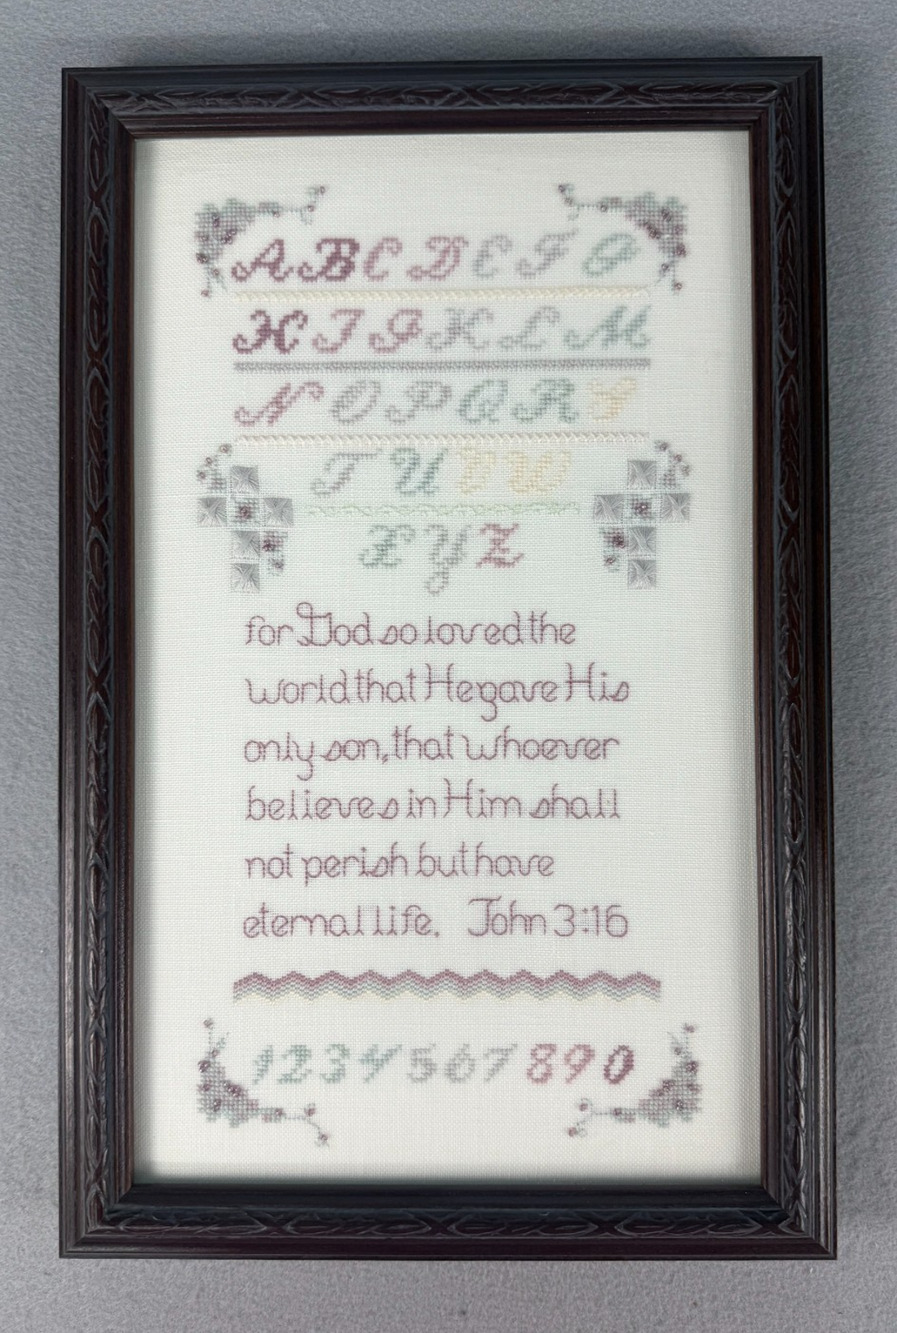 A B C D E F G
H I J K L M
N O P Q R S
T U V W
X Y Z
for God so loved the
world that He gave His
only son, that whoever
believes in Him shall
not perish but have
eternal life. John 3:16
1 2 3 4 5 6 7 8 9 0